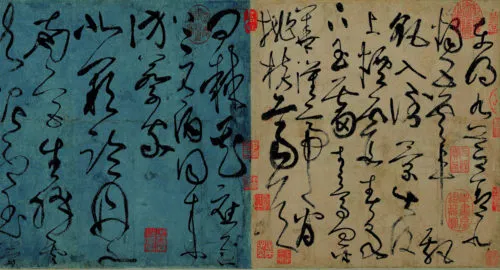 東明九芝蓋北
燭五雲車飄
飖入倒景出沒
上煙霞春泉
下玉霤青鳥向金
華漢帝看
桃核齊侯
問棘花應逐
上元酒同來
訪蔡家
北闕臨丹水
南宮生絳雲
龍泥印玉簡